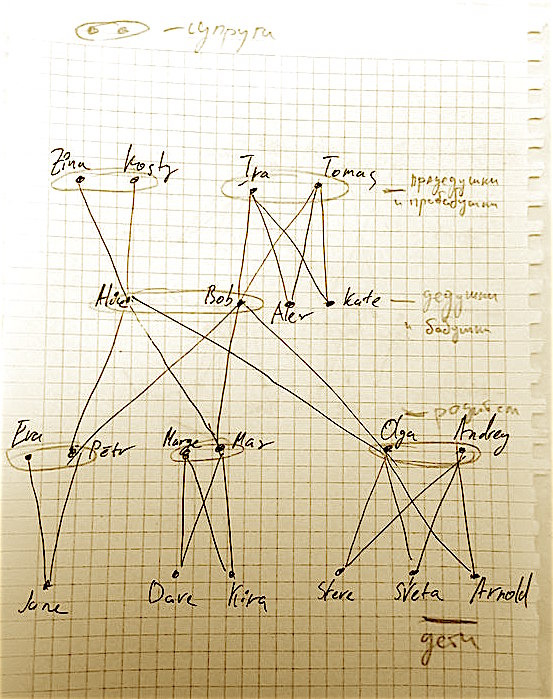 — супруги
Zina Kosty Ira Tomas
— прадедушки
и прабабушки
Alice Bob Alex Kate — дедушки
и бабушки
— родители
Eva Pëtr Marge Max Olga Andrey
Jane Dave Kira Steve Sveta Arnold
дети